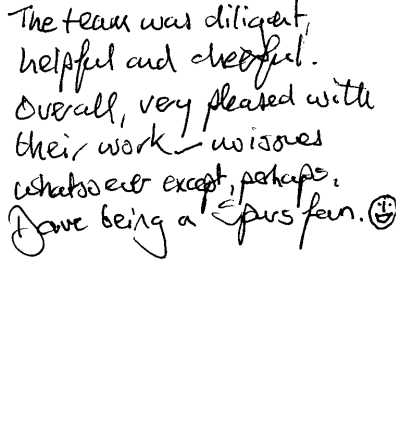 The team was diligent,
helpful and cheerful.
Overall, very pleased with
their work - no issues
whatsoever except, perhaps,
Dave being a Spurs fan.